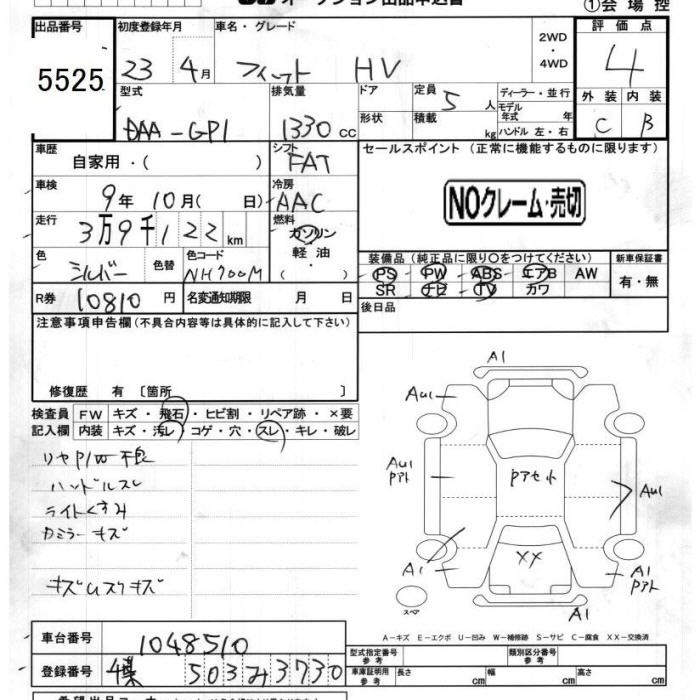 オークション出品申込書 ①会場控
出品番号 初度登録年月 車名・グレード 2WD・4WD 評価点
5525 23 4月 フィット HV 4
型式 排気量 ドア 定員 ディーラー・並行 外装 内装
DAA-GP1 1330cc 5人 モデル年式 年 C B
形状 積載 kg ハンドル 左・右
車歴 シフト セールスポイント(正常に機能するものに限ります)
自家用・( ) FAT
車検 冷房 NOクレーム・売切
9年 10月( 日) AAC
走行 燃料
3万9千122km ガソリン
軽油
・( )
色 色替 色コード 装備品(純正品に限り○をつけてください) 新車保証書
シルバー NH700M PS PW ABS エアB AW 有・無
SR ナビ TV カワ
R券 10810円 名変通知期限 月 日 後日品
注意事項申告欄(不具合内容等は具体的に記入して下さい)
修復歴 有 〔箇所 〕
検査員 FW キズ・飛石・ヒビ割・リペア跡・×要
記入欄 内装 キズ・汚レ・コゲ・穴・スレ・キレ・破レ
リヤP/W不良
ハンドルスレ
ライトくすみ
カミラーキズ
キズムスウキズ
A1
AU1
A1
AU1
Pアト
Pアセット
AU1
XX
A1
A1
Pアト
スペア
A1
A-キズ E-エクボ U-凹み W-補修跡 S-サビ C-腐食 XX-交換済
車台番号 1048510
型式指定番号 参考 類別区分番号 参考
登録番号 503み3730
車庫証明用 参考 長さ 幅 高さ
cm cm cm